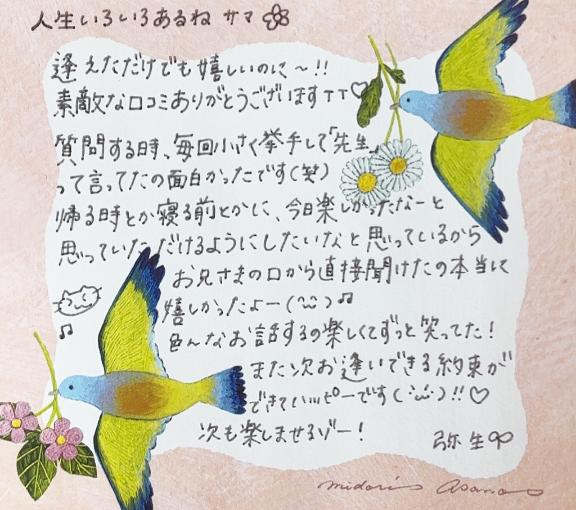 人生いろいろあるね サマ
逢えただけでも嬉しいのに〜!!
素敵な口コミありがとうございますTT♡
質問する時、毎回小さく挙手して「先生」
って言ってたの面白かったです(笑)
帰る時とか寝る前とかに、今日楽しかったなーと
思っていただけるようにしたいなと思っているから
お兄さまの口から直接聞けたの本当に
嬉しかったよー(^^)♫
色んなお話するの楽しくてずっと笑ってた!
また次お逢いできる約束が
できていッピーです(^^)!!♡
次も楽しませるゾー!
弥生
midori Asano